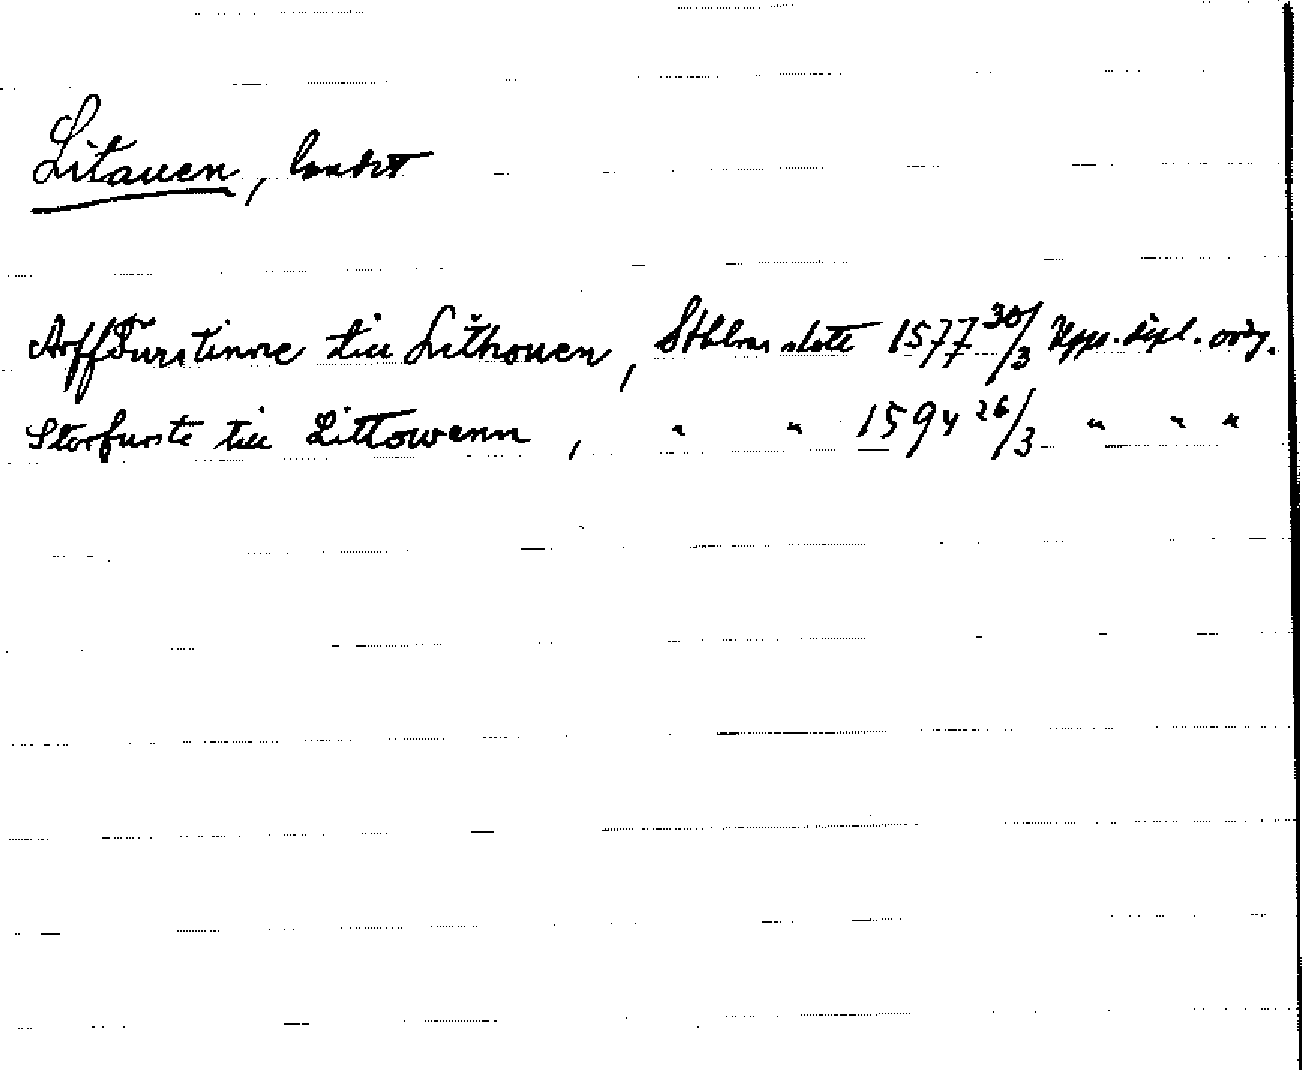 Litauen, landet
Arffurstinne till Lithouen, Sthlms slott 1577 30/3 Upps. dipl. orig.
Storfurste till Littowenn, " " 1594 26/3 " " "